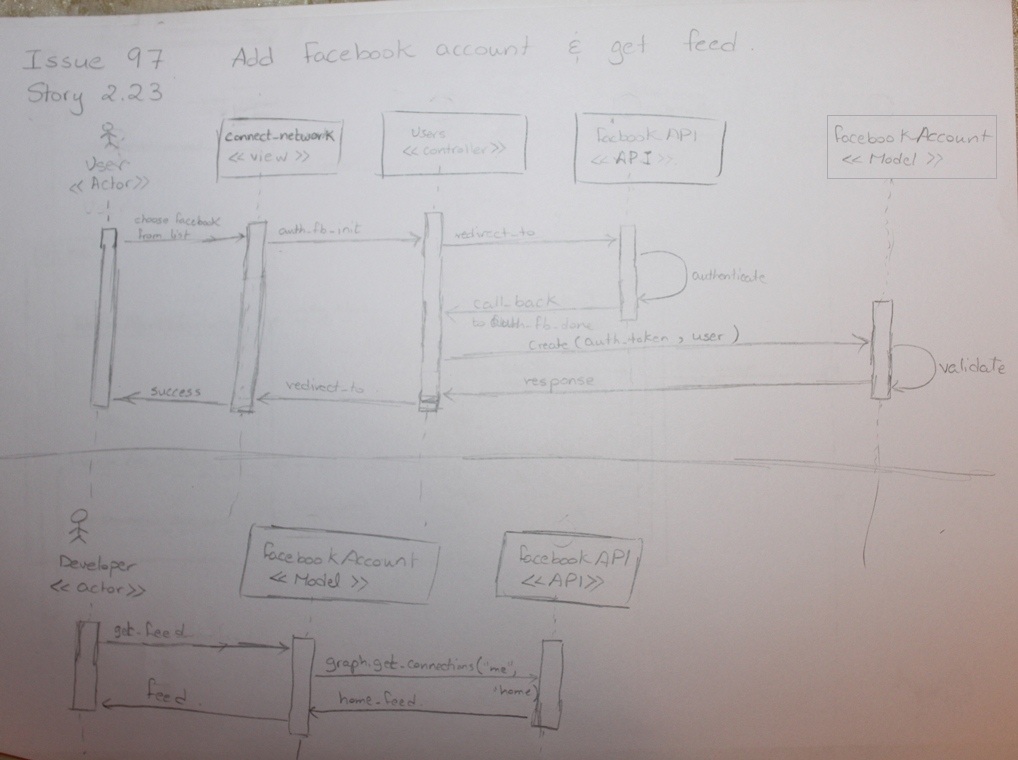 Issue 97 Add Facebook account & get feed.
Story 2.23
User
<< Actor>>
connect_network
<< view >>
Users
<<controller>>
facbook API
<< API >>
facebook Account
<< Model >>
choose facebook
from list
auth_fb_init
redirect_to
authenticate
call_back
to auth_fb_done
Create (auth_token , user )
validate
response
redirect_to
success
Developer
<< actor>>
facebook Account
<< Model >>
facebook API
<<API>>
get_feed
graph.get_connections("me",
"home)
home_feed.
feed.